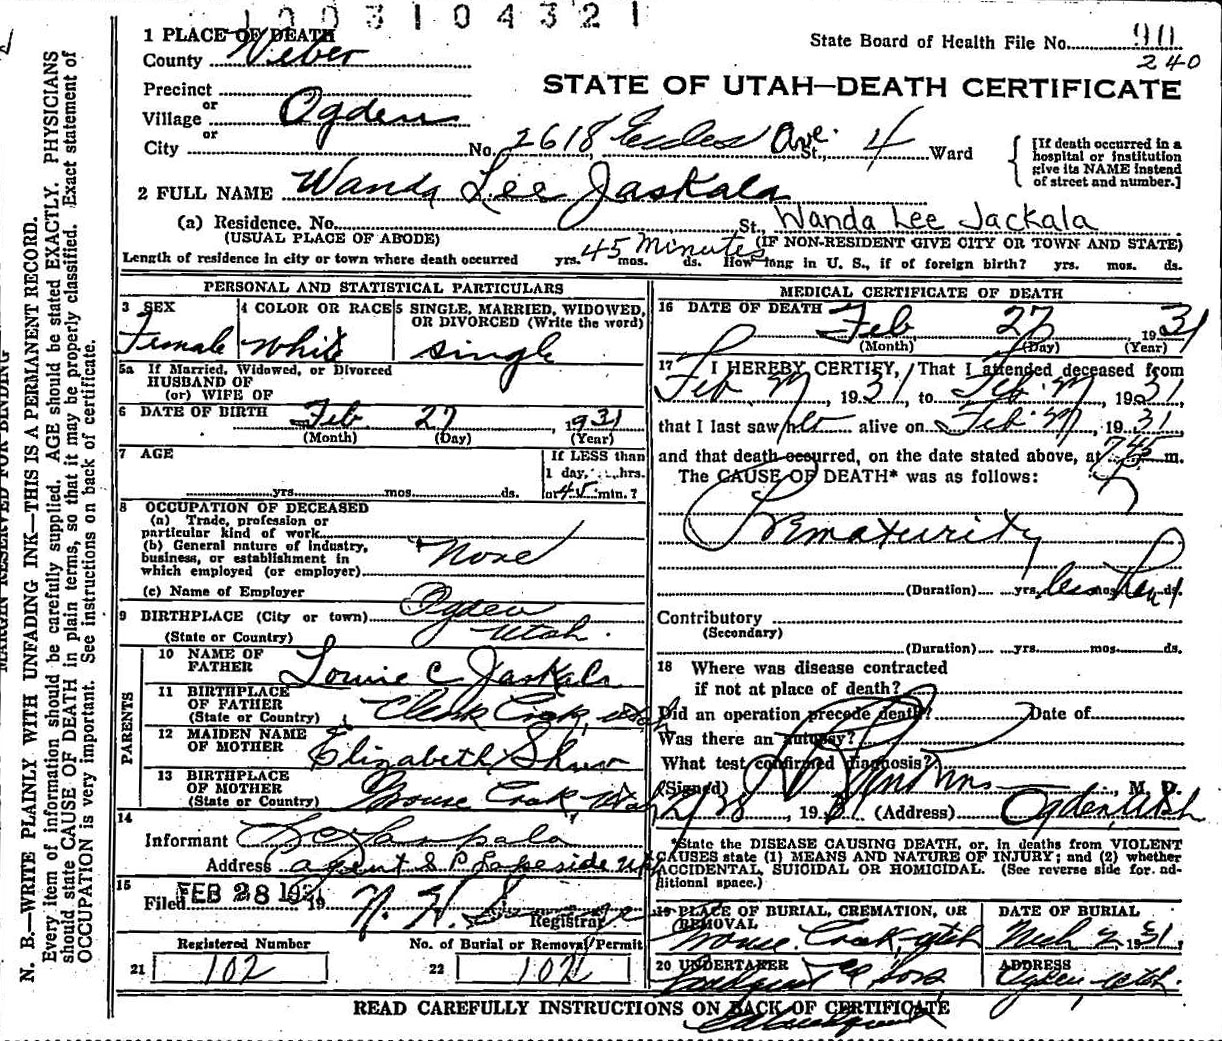 1003104321
State Board of Health File No. 911
240
STATE OF UTAH—DEATH CERTIFICATE
1 PLACE OF DEATH
County Weber
Precinct
or
Village Ogden
or
City No. 2618 Eccles Ave. St., 4 Ward
[If death occurred in a hospital or institution give its NAME instead of street and number.]
2 FULL NAME Wanda Lee Jaskala
(a) Residence. No. St. Wanda Lee Jackala
(USUAL PLACE OF ABODE) (IF NON-RESIDENT GIVE CITY OR TOWN AND STATE)
Length of residence in city or town where death occurred yrs. mos. ds. 45 Minutes How long in U. S., if of foreign birth? yrs. mos. ds.
PERSONAL AND STATISTICAL PARTICULARS
3 SEX Female
4 COLOR OR RACE White
5 SINGLE, MARRIED, WIDOWED, OR DIVORCED (Write the word) single
5a If Married, Widowed, or Divorced
HUSBAND OF
(or) WIFE OF
6 DATE OF BIRTH Feb. 27, 1931
(Month) (Day) (Year)
7 AGE
yrs. mos. ds.
If LESS than
1 day, hrs.
or 45 min.?
8 OCCUPATION OF DECEASED
(a) Trade, profession or
particular kind of work
(b) General nature of industry,
business, or establishment in
which employed (or employer) None
(c) Name of Employer
9 BIRTHPLACE (City or town) Ogden
(State or Country) Utah.
PARENTS
10 NAME OF FATHER Louie C Jaskala
11 BIRTHPLACE OF FATHER (State or Country) Creek, Utah
12 MAIDEN NAME OF MOTHER Elizabeth Shaw
13 BIRTHPLACE OF MOTHER (State or Country) Creek, Utah
14
Informant
Address agent S P Lakeside Ut
15
Filed FEB 28 1931 19 N. H. Registrar
Registered Number
21 102
No. of Burial or Removal Permit
22 102
MEDICAL CERTIFICATE OF DEATH
16 DATE OF DEATH Feb 27 1931
(Month) (Day) (Year)
17 I HEREBY CERTIFY, That I attended deceased from
Feb 27, 1931, to Feb. 27, 1931,
that I last saw her alive on Feb. 27, 1931
and that death occurred, on the date stated above, at 745 m.
The CAUSE OF DEATH* was as follows:
Prematurity
(Duration) yrs. mos. ds. less than 1
Contributory
(Secondary)
(Duration) yrs. mos. ds.
18 Where was disease contracted
if not at place of death?
Did an operation precede death? Date of
Was there an autopsy?
What test confirmed diagnosis?
(Signed) , M. D.
2/28, 1931 (Address) Ogden, Utah
*State the DISEASE CAUSING DEATH, or, in deaths from VIOLENT
CAUSES state (1) MEANS AND NATURE OF INJURY; and (2) whether
ACCIDENTAL, SUICIDAL OR HOMICIDAL. (See reverse side for additional space.)
19 PLACE OF BURIAL, CREMATION, OR REMOVAL Creek, Utah
DATE OF BURIAL Mch 2 1931
20 UNDERTAKER Lindquist & Sons
ADDRESS Ogden Utah.
READ CAREFULLY INSTRUCTIONS ON BACK OF CERTIFICATE
MARGIN RESERVED FOR BINDING
N. B.—WRITE PLAINLY WITH UNFADING INK—THIS IS A PERMANENT RECORD.
Every item of information should be carefully supplied. AGE should be stated EXACTLY. PHYSICIANS
should state CAUSE OF DEATH in plain terms, so that it may be properly classified. Exact statement of
OCCUPATION is very important. See instructions on back of certificate.